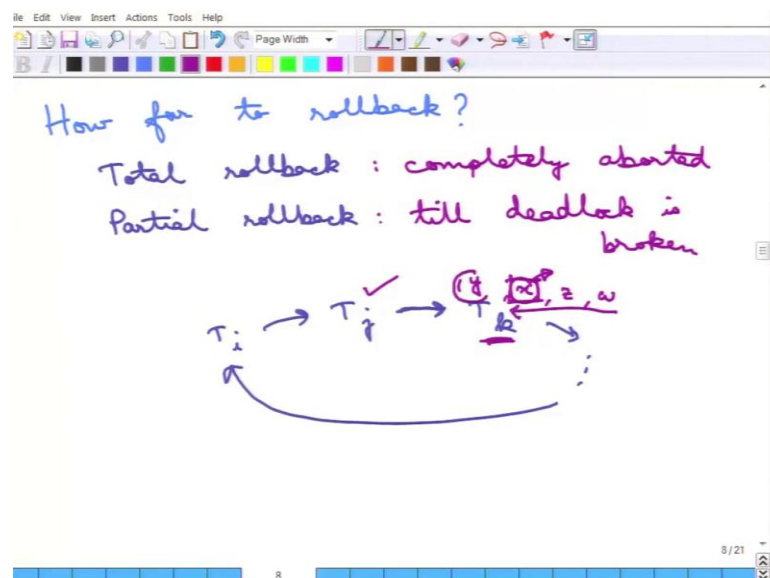 ile Edit View Insert Actions Tools Help
Page Width
B I
How far to rollback?
Total rollback : completely aborted
Partial rollback : till deadlock is
broken
y, x, z, w
T i → T j → T k
8/21
8